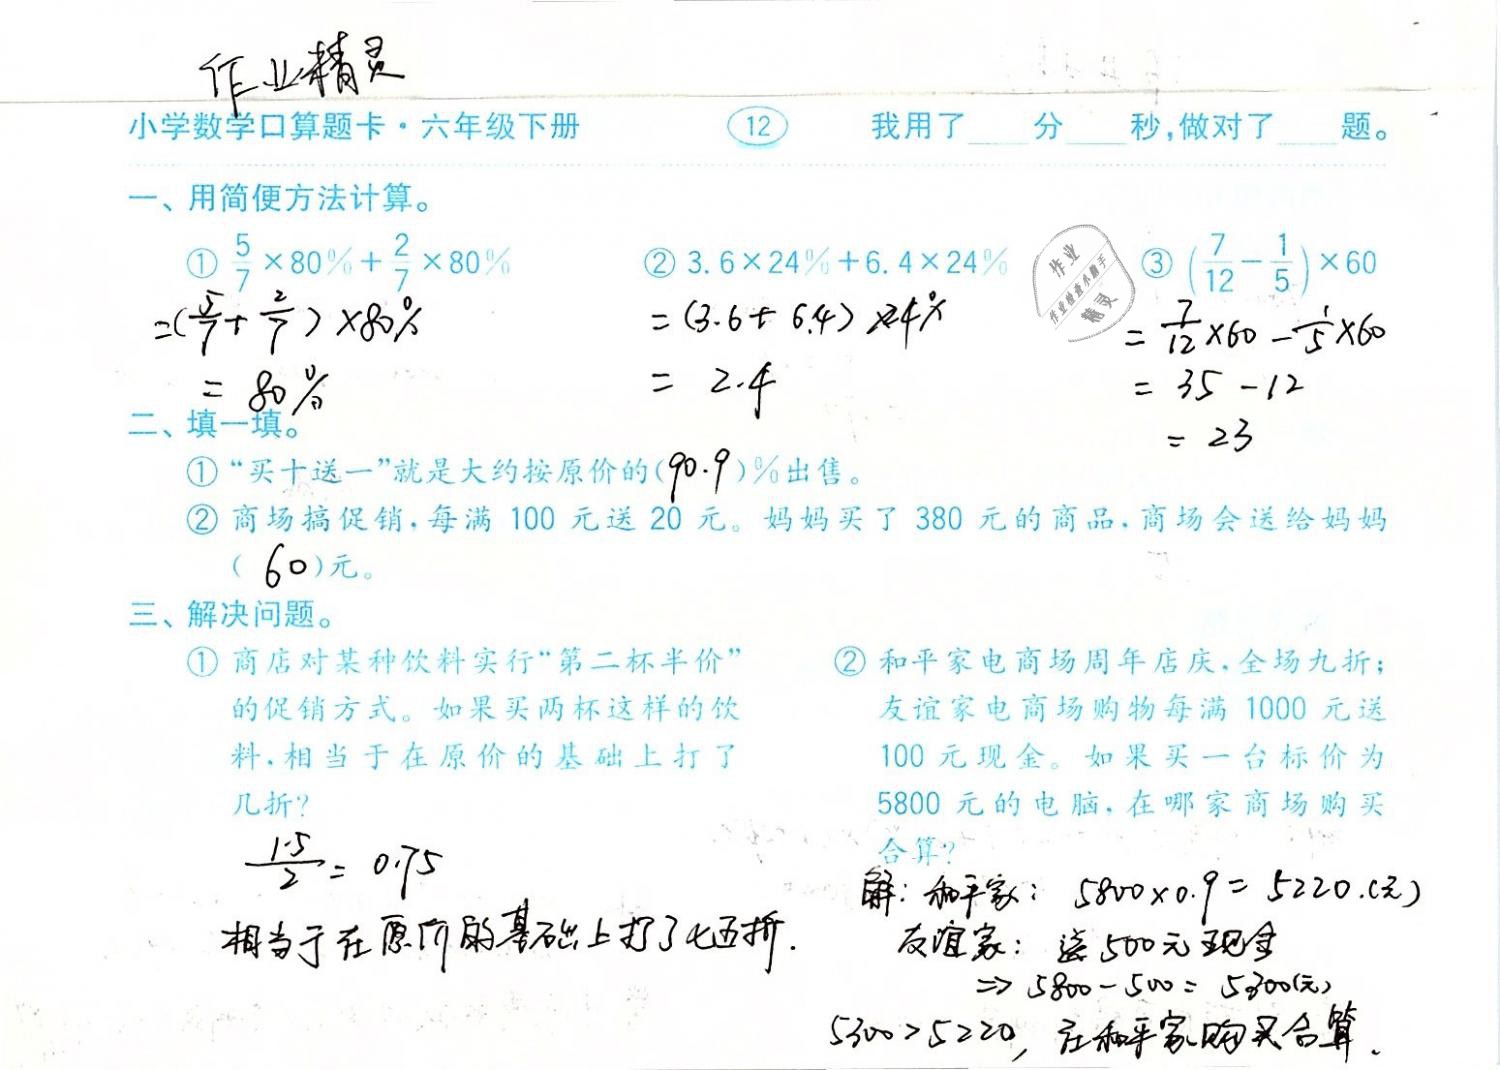 作业精灵
小学数学口算题卡·六年级下册 12 我用了____分____秒,做对了____题。
一、用简便方法计算。
① 5/7×80%+2/7×80% ② 3.6×24%+6.4×24% ③ (7/12-1/5)×60
=(5/7+2/7)×80% =(3.6+6.4)×24% =7/12×60-1/5×60
=80% =2.4 =35-12
=23
作业
作业检查小助手
精灵
二、填一填。
① “买十送一”就是大约按原价的(90.9)%出售。
② 商场搞促销,每满 100 元送 20 元。妈妈买了 380 元的商品,商场会送给妈妈
(60)元。
三、解决问题。
① 商店对某种饮料实行“第二杯半价”
的促销方式。如果买两杯这样的饮
料,相当于在原价的基础上打了
几折?
1.5/2=0.75
相当于在原价的基础上打了七五折.
② 和平家电商场周年店庆,全场九折;
友谊家电商场购物每满 1000 元送
100 元现金。如果买一台标价为
5800 元的电脑,在哪家商场购买
合算?
解: 和平家: 5800×0.9=5220.(元)
友谊家: 送500元现金
⇒5800-500=5300(元)
5300>5220, 在和平家购买合算.